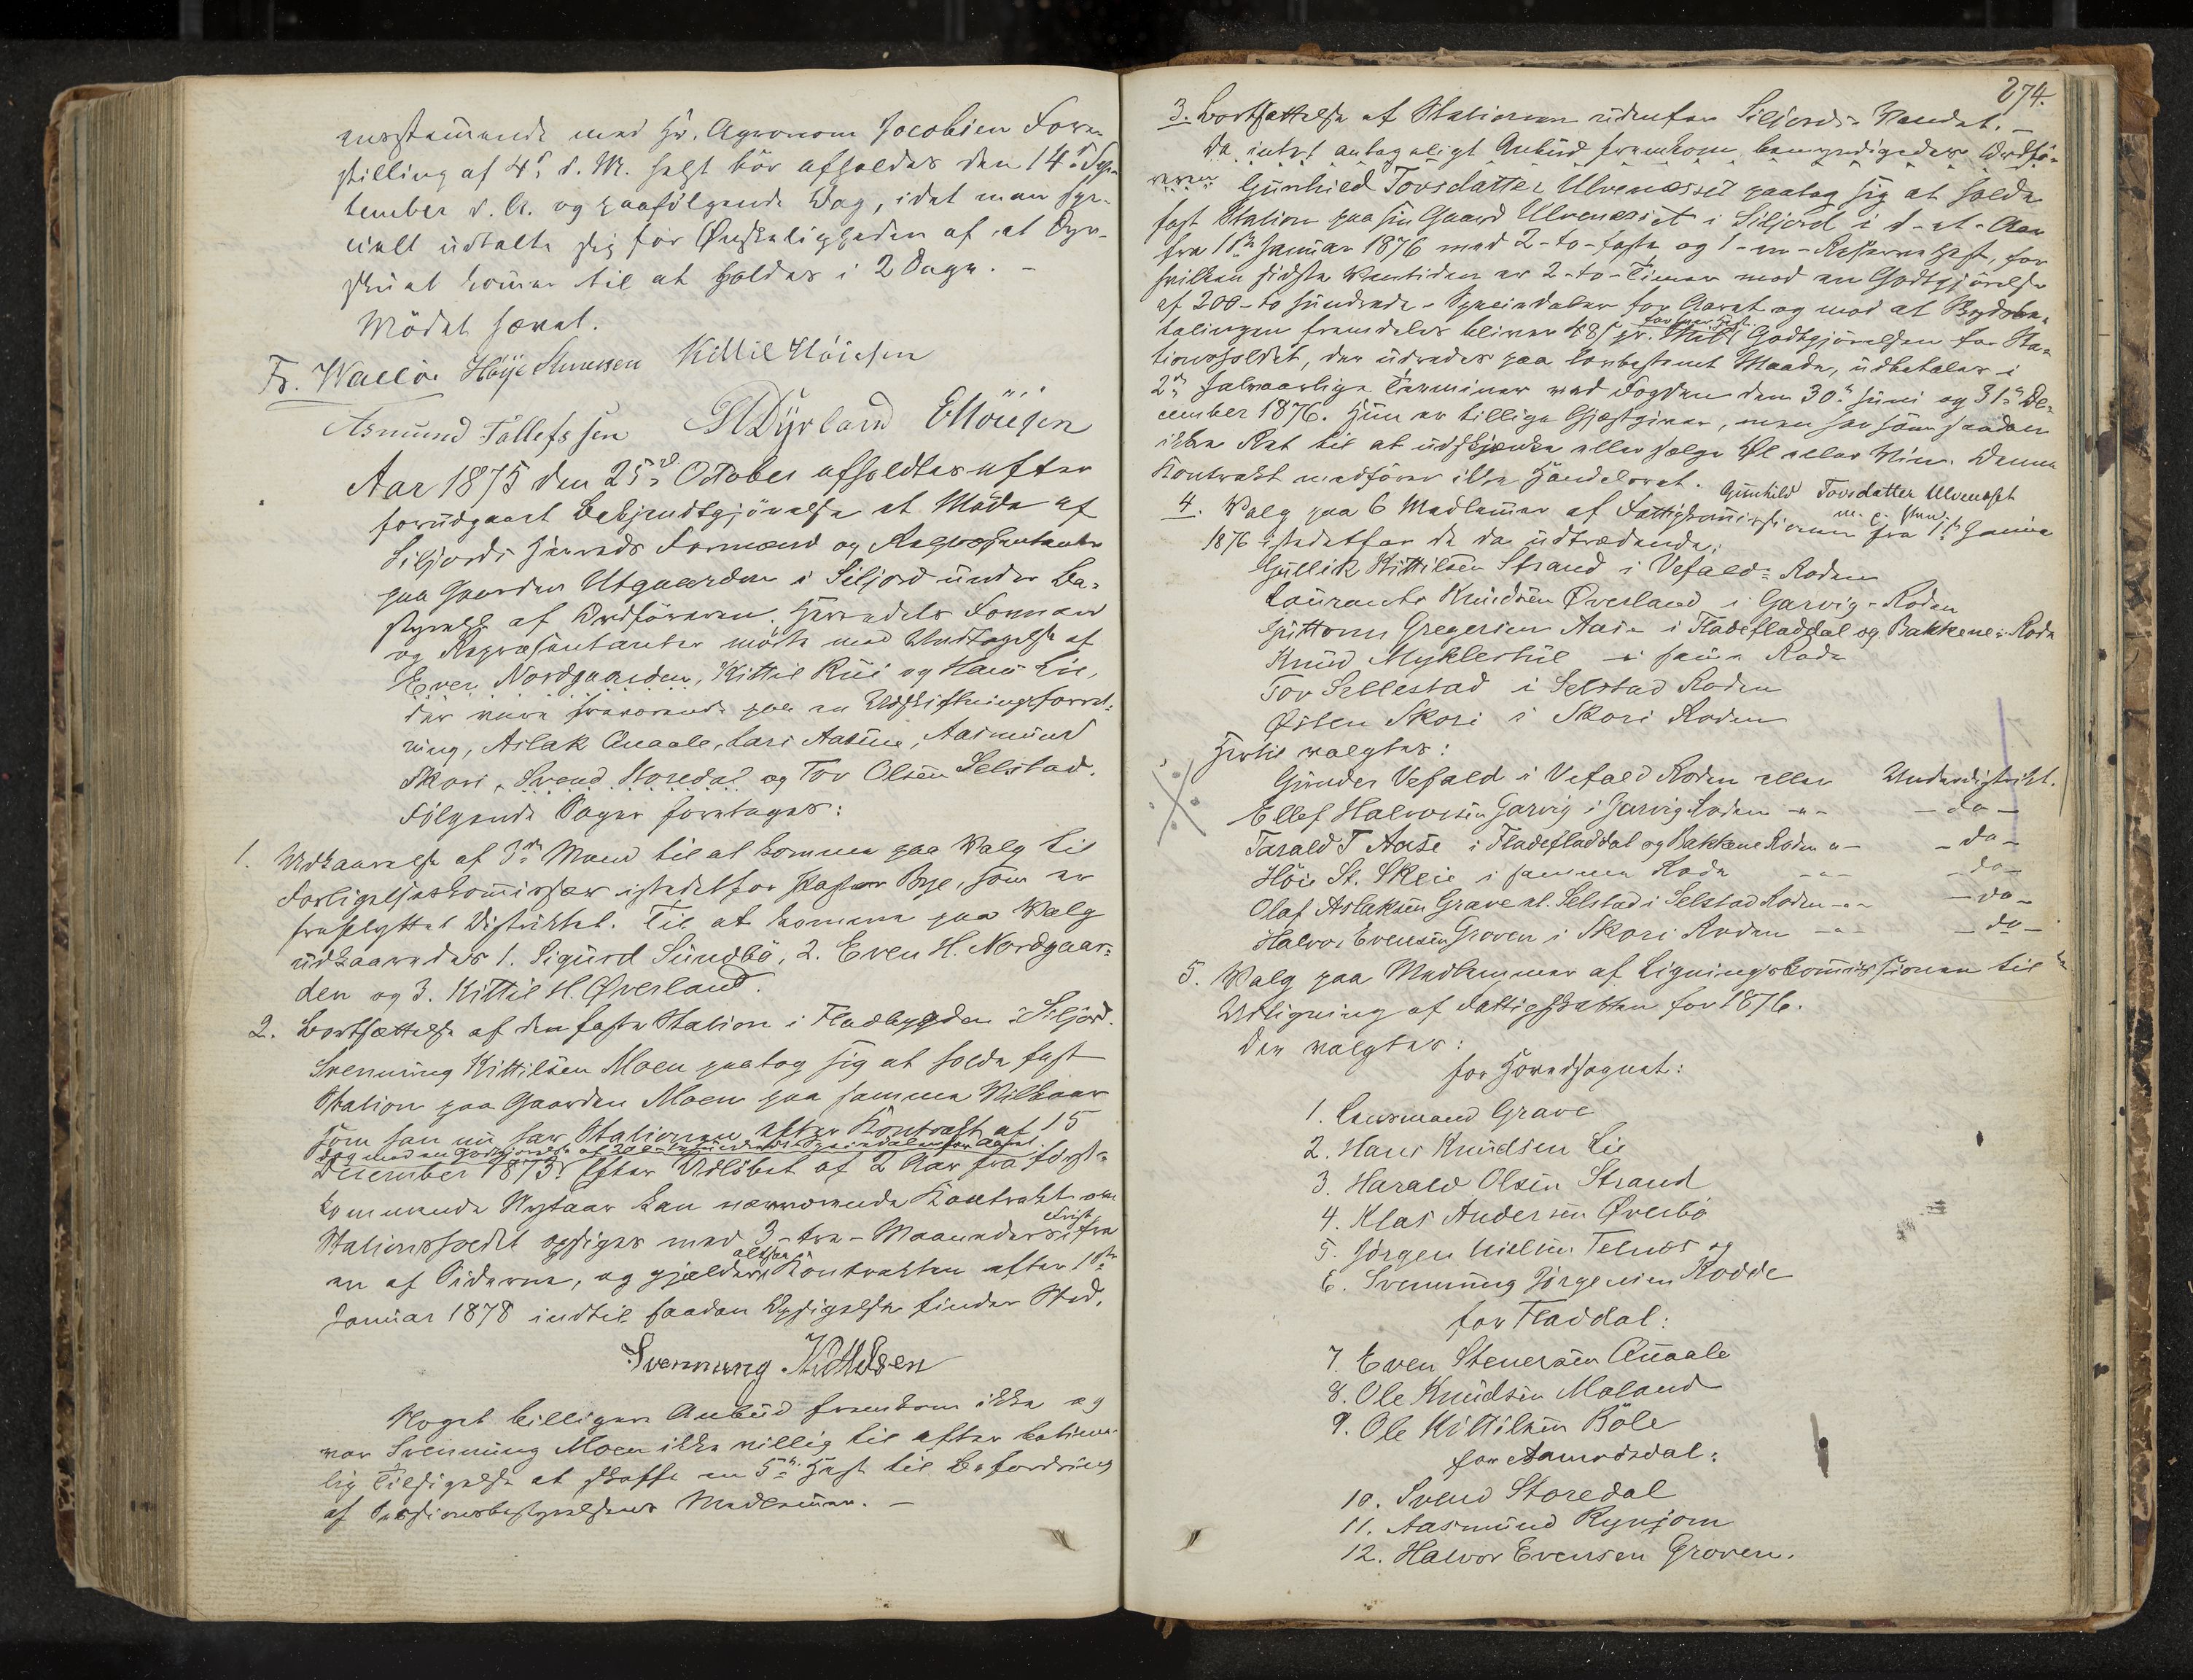 ensstemmende med Hr. Agronom Jacobsen Fore-
stilling af 4de d. M. helst bör afholdes den 14de Sep-
tember d. A. og paafölgende Dag, idet man spe-
cielt udtalte sig for Ønskeligheden af at Dyr-
skuet kommer til at holdes i 2 Dage. –
Mödet hævet.
Fr. Waelö. Höye Kittil Höiesen
Asmund Tallefssen Dyrland
Aar 1875 den 25de October afholdtes efter
forudgaaet Bekjendtgjörelse et Möde af
Siljords Herreds Formænd og Repræsentanter
paa Gaarden Utgaarden i Siljord under Be-
styrelse af Ordföreren. Herredets Formænd
og Repræsentanter mödte med Undtagelse af
Even Nordgaarden, Kittil Rui og Hans Lie,
der vare fraværende paa en Udskiftningsforret-
ning, Aslak Anaale, Lars Aasine, Aasmund
Skori, Svend Storedal og Tov Olsen Selstad.
Fölgende Sager foretoges:
1. Udkaarelse af 3de Mænd til at komme paa Valg til
Forligelseskommissær istedetfor Pastor Bye, som er
fraflyttet Distriktet. Til at komme paa Valg
udkaaredes 1. Sigurd Sundbö, 2. Even H. Nordgaar-
den og 3. Kittil H. Øverland.
2. Bortsættelse af den faste Station i Fladbygden i Siljord.
Svenning Kittilsen Moen paatog sig at holde fast
Station paa Gaarden Moen paa samme Vilkaar
som han nu har Stationen efter Kontrakt af 15
dog med en Godtgjörelse af Speciedaler for Aaret.
December 1873. Efter Udlöbet af 2 Aar fra först-
kommende Nytaar kan nærværende Kontrakt om
Stationsholdet opsiges med 3-tre-Maaneders Frist fra
en af Siderne, og gjælder altsaa Kontrakten efter 1ste
Januar 1878 indtil saadan Opsigelse finder Sted.
Svennung Kittilsen
Noget billigere Anbud fremkom ikke og
var Svenning Moen ikke villig til efter betime-
lig Tilsigelse at skaffe en 5te Hest til Befordring
af Medlemmer. –
274.
3. Bortsættelse af Stationen udenfor Siljords-Vandet. –
Da intet antageligt Anbud fremkom bemyndigedes Ordfö-
reren
Gunhild Tovsdatter Ulvenesset paatog sig at holde
fast Station paa sin Gaard Ulvenesset i Siljord i 1-et-Aar
fra 1ste Januar 1876 med 2-to-faste og 1-en-Reservehest, for
hvilken sidste Ventetiden er 2-to-Timer mod en Godtgjörelse
af 200-to hundrede-Speciedaler for Aaret og mod at Skydsbe-
talingen fremdeles bliver 48 s pr. Mil for hver Hest. Godtgjörelsen for Sta-
tionsholdet, der udredes paa lovbestemt Maade, udbetales i
2de halvaarlige Terminer ved Fogden den 30te Juni og 31te De-
cember 1876. Hun er tillige Gjæstgiver, men har som saadan
ikke Ret til at udskjænke eller sælge Øl eller Viin. Denne
Kontrakt medförer ikke Handelsret. Gunhild Tovsdatter Ulvenesset
m. p. Pen
4. Valg paa 6 Medlemmer af Fattigkommissionen fra 1ste Januar
1876 istedetfor de da udtrædende:
Gullik Kittilsen Strand i Vefald-Roden
Laurants Knudsen Øverland i Garvig-Roden
Guttorm Gregersen Aase i Fladefladdal og Bakkene-Rode
Knud Myklestul i samme Rode
Tov Sellestad i Selstad Roden
Østen Skori i Skori Roden
Hertil valgtes:
Gunder Vefald i Vefald Roden eller Underdistrikt.
Ellef Halvorsen Garvig i Garvig Roden -"- – do –
Tarald T Aase i Fladefladdal og Bakkene Roden "– – do –
Höie St. Skeie i samme Rode -"- – do –
Olaf Aslaksen Grave nl. Selstad i Selstad Roden -"- – do –
Halvor Evensen Groven i Skori Roden -"- – do –
5. Valg paa Medlemmer af Ligningskommissionen til
Udligning af Fattigskatten for 1876.
Der valgtes:
for Hovedsognet:
1. Lensmand Grave
2. Hans Knudsen Lie
3. Harald Olsen Strand
4. Klas Andersen Øverbö
5. Jörgen Nielsen Telnes og
6. Svenning Jörgensen Kodde
for Fladdal:
7. Even Stenersen Anaale
8. Ole Knudsen Moland
9. Ole Kittilsen Böle
for Aamodsdal:
10. Svend Storedal
11. Aasmund Rynjom
12. Halvor Evensen Groven.